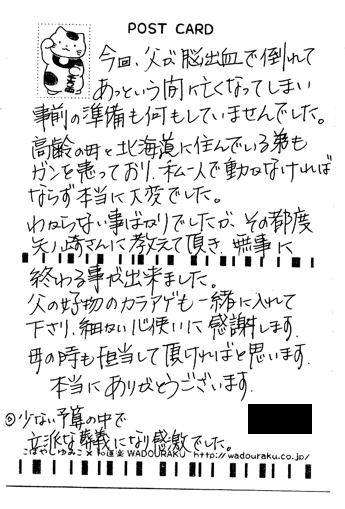 POST CARD
今回、父が脳出血で倒れて
あっという間に亡くなってしまい
事前の準備も何もしていませんでした。
高齢の母と北海道に住んでいる弟も
ガンを患っており、私一人で動かなければ
ならず本当に大変でした。
わからない事ばかりでしたが、その都度
矢ノ崎さんに教えて頂き、無事に
終わる事が出来ました。
父の好物のカラアゲも一緒に入れて
下さり、細かい心使いに感謝します。
母の時も担当して頂ければと思います。
本当にありがとうございます。
◎少ない予算の中で
立派な葬儀になり感激でした。
こばやしゆみこ×和道楽 WADOURAKU http://wadouraku.co.jp/